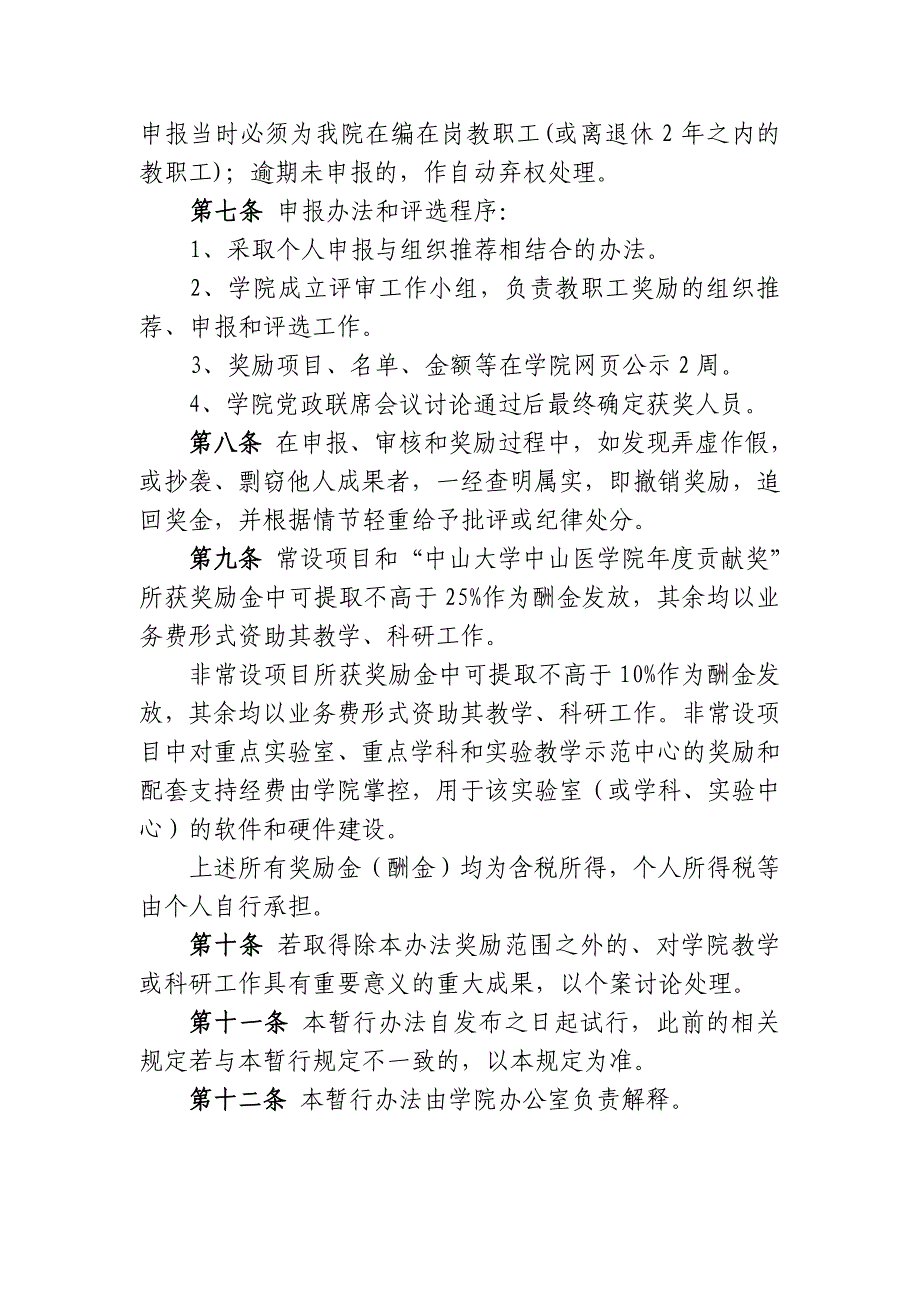 申报当时必须为我院在编在岗教职工(或离退休 2 年之内的
教职工)；逾期未申报的，作自动弃权处理。
第七条 申报办法和评选程序：
1、采取个人申报与组织推荐相结合的办法。
2、学院成立评审工作小组，负责教职工奖励的组织推
荐、申报和评选工作。
3、奖励项目、名单、金额等在学院网页公示 2 周。
4、学院党政联席会议讨论通过后最终确定获奖人员。
第八条 在申报、审核和奖励过程中，如发现弄虚作假，
或抄袭、剽窃他人成果者，一经查明属实，即撤销奖励，追
回奖金，并根据情节轻重给予批评或纪律处分。
第九条 常设项目和“中山大学中山医学院年度贡献奖”
所获奖励金中可提取不高于 25%作为酬金发放，其余均以业
务费形式资助其教学、科研工作。
非常设项目所获奖励金中可提取不高于 10%作为酬金发
放，其余均以业务费形式资助其教学、科研工作。非常设项
目中对重点实验室、重点学科和实验教学示范中心的奖励和
配套支持经费由学院掌控，用于该实验室（或学科、实验中
心）的软件和硬件建设。
上述所有奖励金（酬金）均为含税所得，个人所得税等
由个人自行承担。
第十条 若取得除本办法奖励范围之外的、对学院教学
或科研工作具有重要意义的重大成果，以个案讨论处理。
第十一条 本暂行办法自发布之日起试行，此前的相关
规定若与本暂行规定不一致的，以本规定为准。
第十二条 本暂行办法由学院办公室负责解释。